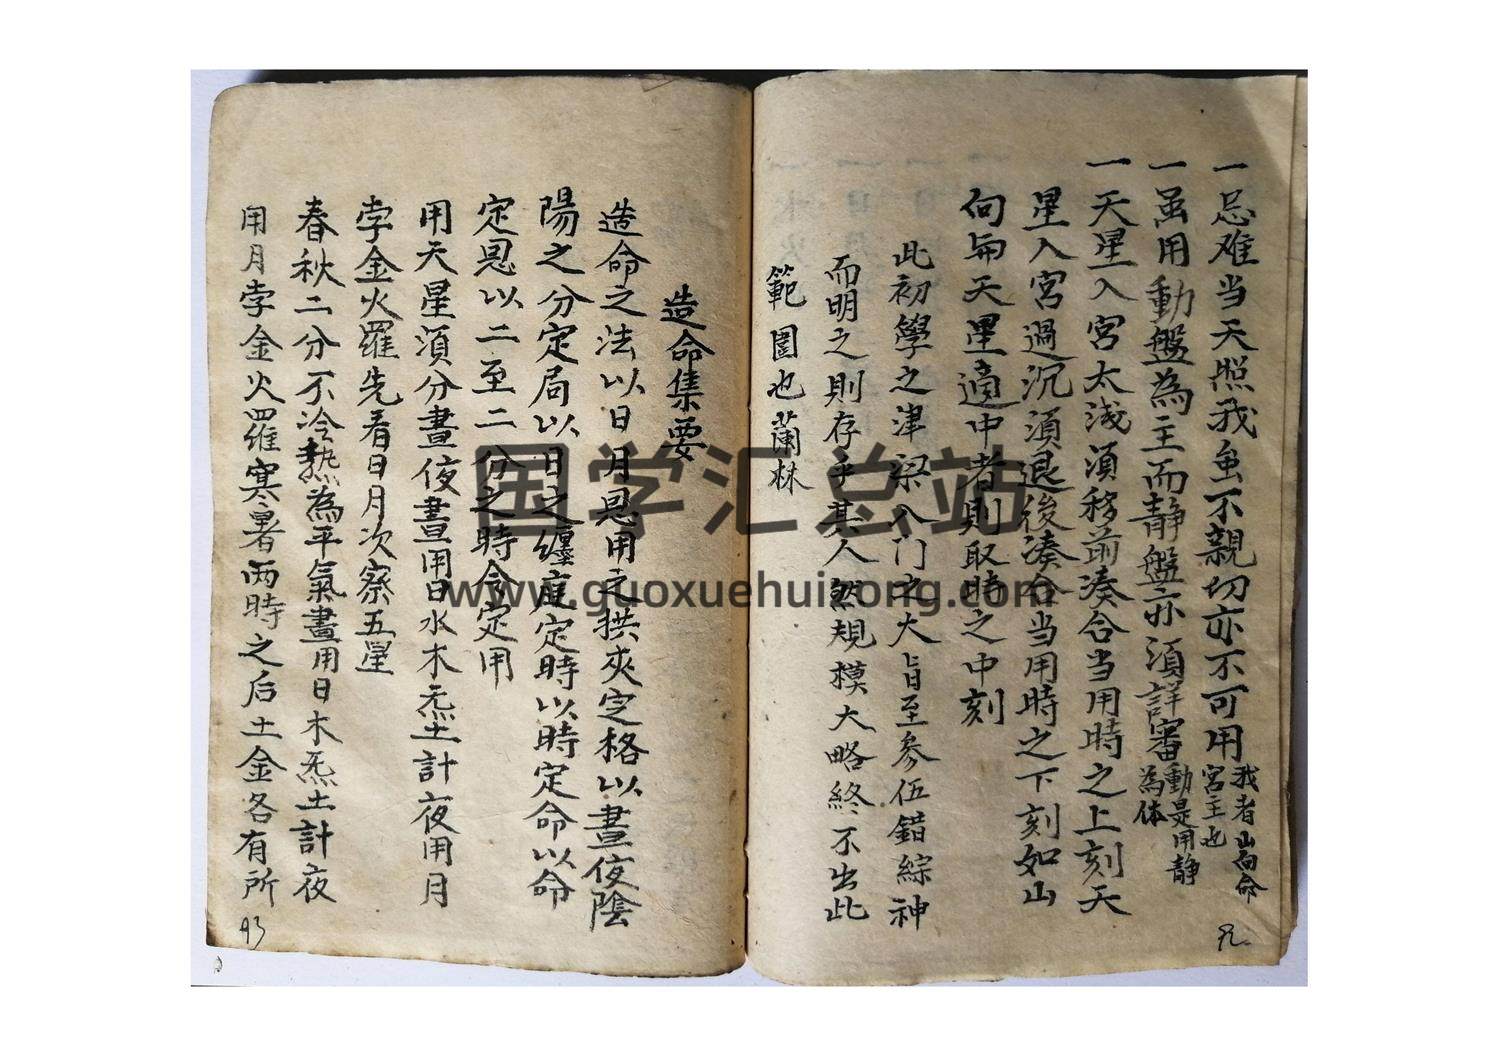 一忌难当天照我虽不親切亦不可用
我者山向命
宮主也
一虽用動盤為主而静盤亦須詳審
動是用静
為体
一天星入宮太浅須移前湊合当用時之上刻天
星入宮過沉須退後湊合当用時之下刻如山
向与天星適中者則取時之中刻
此初學之津梁入门之大旨至参伍錯綜神
而明之則存乎其人然規模大略終不出此
範圍也蘭林
九
造命集要
造命之法以日月恩用之拱夾定格以晝夜陰
陽之分定局以日之纏度定時以時定命以命
定恩以二至二分之時令定用
用天星須分晝夜晝用日水木炁土計夜用月
孛金火羅先看日月次察五星
春秋二分不冷熱為平氣晝用日木炁土計夜
用月孛金火羅寒暑两時之后土金各有所
国学汇总站
www.guoxuehuizong.com